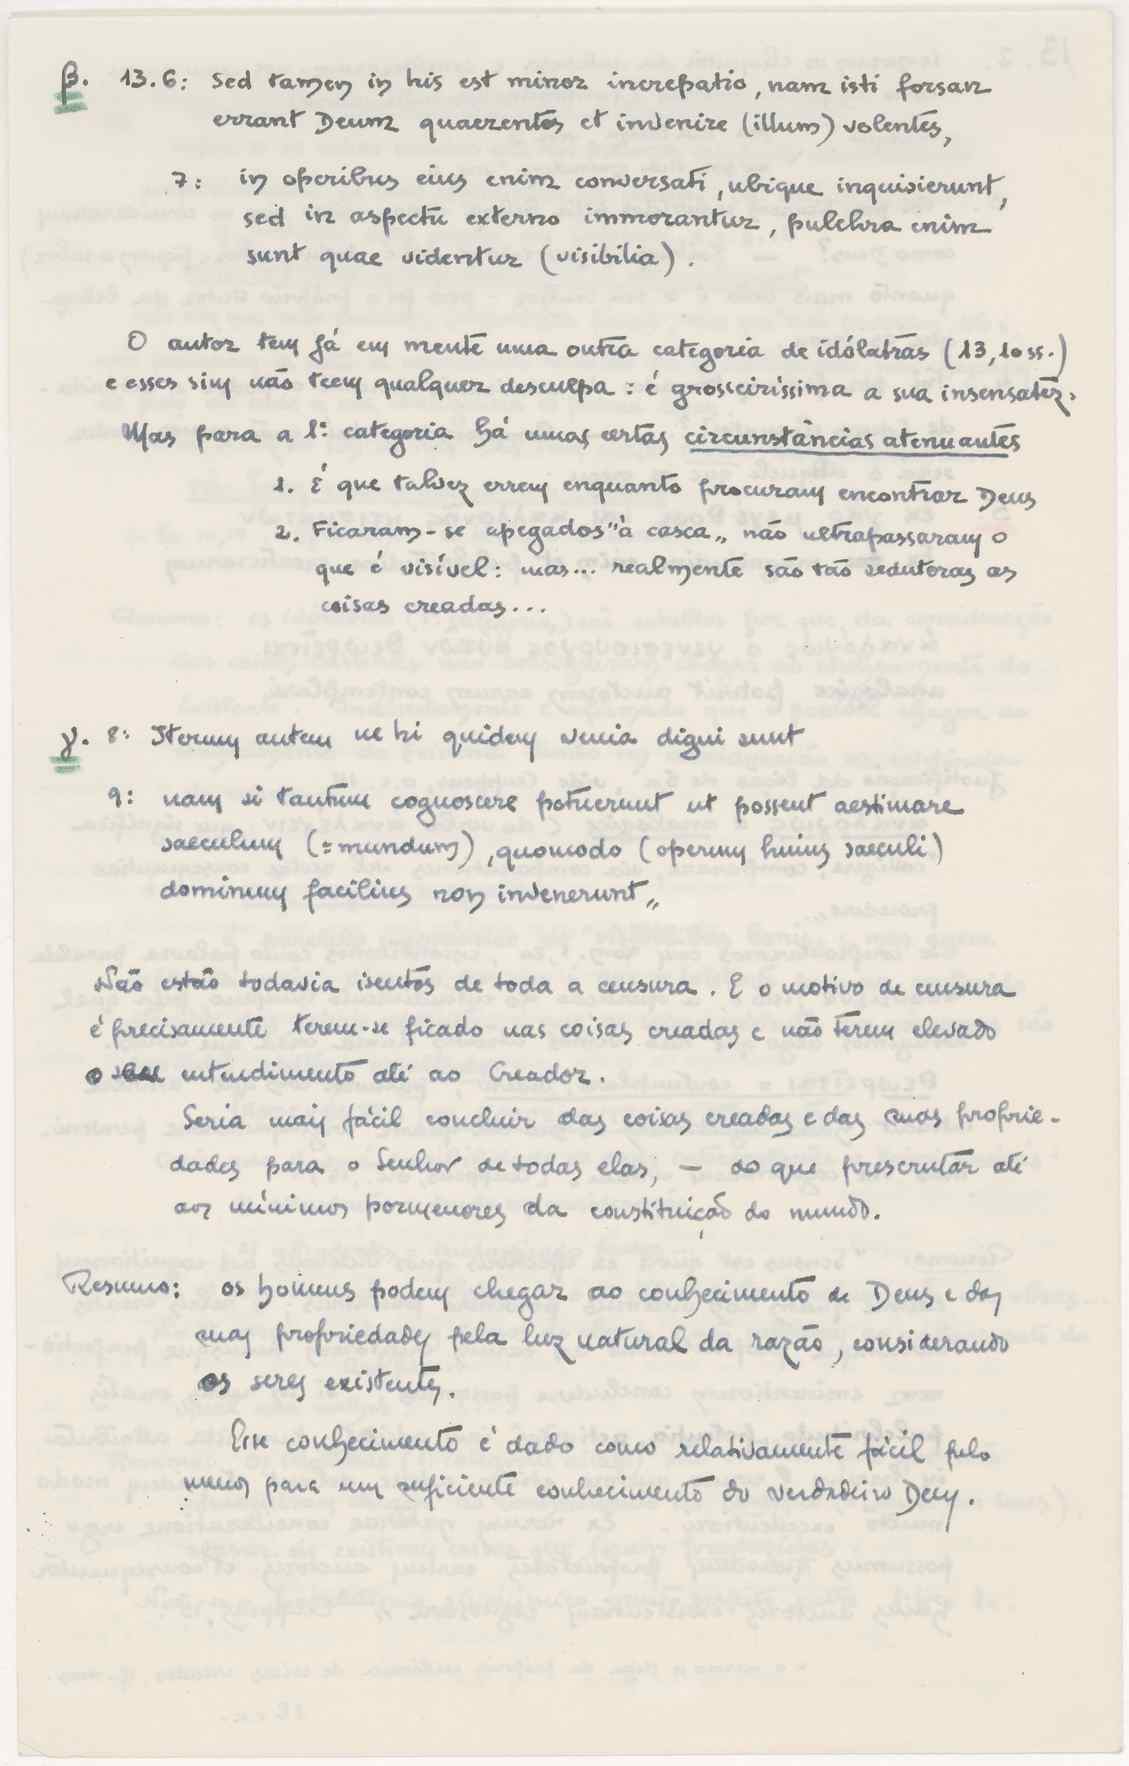 β. 13.6: Sed tamen in his est minor increpatio, nam isti forsan
errant Deum quaerentes et invenire (illum) volentes,
7: in operibus eius enim conversati, ubique inquisierunt,
sed in aspectu externo immorantur, pulchra enim
sunt quae videntur (visibilia).
O autor tem já em mente uma outra categoria de idólatras (13,10ss.)
e esses sim não teem qualquer desculpa: é grosseiríssima a sua insensatez.
Mas para a 1ª categoria há umas certas circunstâncias atenuantes
1. É que talvez errem enquanto procuram encontrar Deus
2. Ficaram-se apegados "à casca„ não ultrapassaram o
que é visível: mas... realmente são tão sedutoras as
coisas creadas...
γ. 8: Iterum autem ne hi quidem venia digni sunt
9: nam si tantum cognoscere potuerunt ut possent aestimare
saeculum (=mundum), quomodo (operum huius saeculi)
dominum facilius non invenerunt„
Não estão todavia isentos de toda a censura. E o motivo de censura
é precisamente terem-se ficado nas coisas creadas e não terem elevado
o seu entendimento até ao Creador.
Seria mais fácil concluir das coisas creadas e das suas proprie-
dades para o Senhor de todas elas, — do que prescrutar até
aos mínimos pormenores da constituição do mundo.
Resumo: os homens podem chegar ao conhecimento de Deus e das
suas propriedades pela luz natural da razão, considerando
os seres existentes.
Esse conhecimento é dado como relativamente fácil pelo
menos para um suficiente conhecimento do verdadeiro Deus.